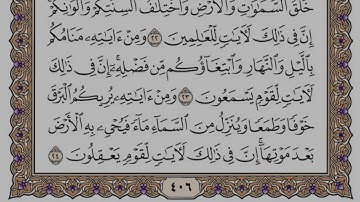 خَلْقُ ٱلسَّمَٰوَٰتِ وَٱلْأَرْضِ وَٱخْتِلَٰفُ أَلْسِنَتِكُمْ وَأَلْوَٰنِكُمْ
إِنَّ فِى ذَٰلِكَ لَءَايَٰتٍ لِّلْعَٰلِمِينَ ٢٢ وَمِنْ ءَايَٰتِهِۦ مَنَامُكُم
بِٱلَّيْلِ وَٱلنَّهَارِ وَٱبْتِغَآؤُكُم مِّن فَضْلِهِۦٓ إِنَّ فِى ذَٰلِكَ
لَءَايَٰتٍ لِّقَوْمٍ يَسْمَعُونَ ٢٣ وَمِنْ ءَايَٰتِهِۦ يُرِيكُمُ ٱلْبَرْقَ
خَوْفًا وَطَمَعًا وَيُنَزِّلُ مِنَ ٱلسَّمَآءِ مَآءً فَيُحْىِۦ بِهِ ٱلْأَرْضَ
بَعْدَ مَوْتِهَآ إِنَّ فِى ذَٰلِكَ لَءَايَٰتٍ لِّقَوْمٍ يَعْقِلُونَ ٢٤
٤٠٦